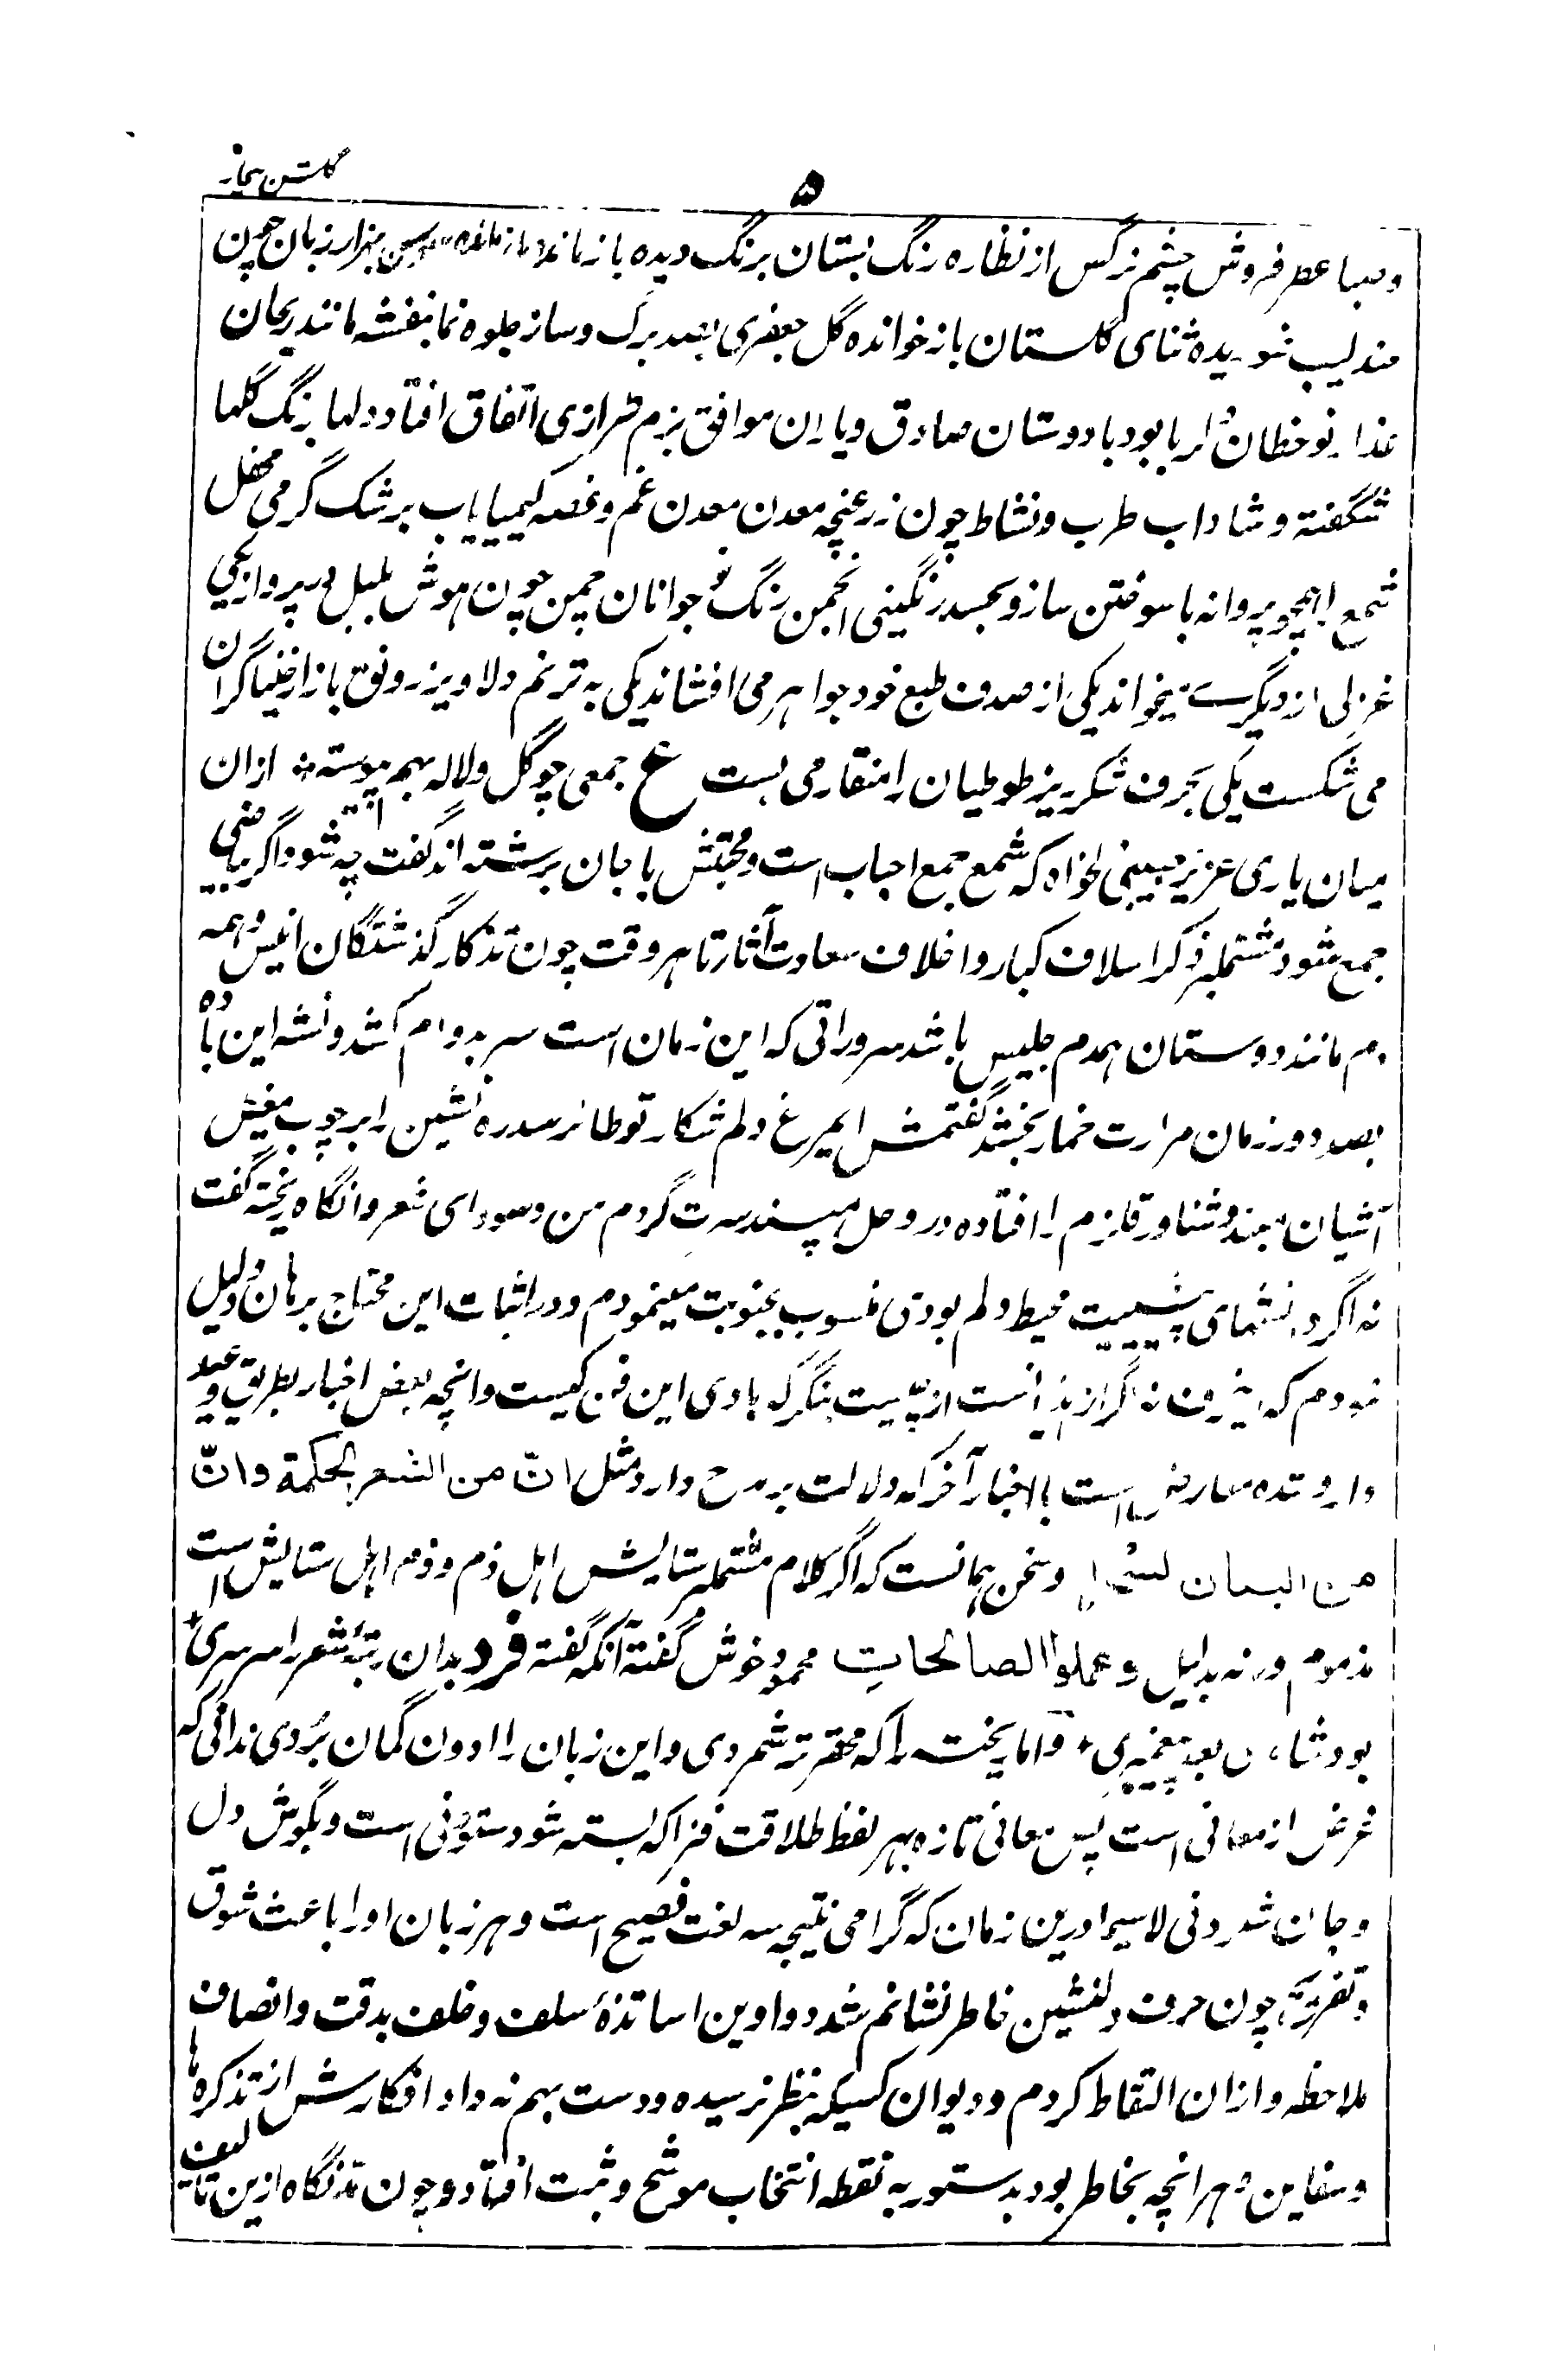 گلشن بیخار
۵
وصبا عطر فروش چشم نرگس از نظاره رنگ بستان برنگ دیده باز مانده سوسن بهزار زبان چون
عندلیب شوریده ثنای گلستان باز خوانده گل جعفری بصد برگ وساز جلوه نما بنفشه مانند ریحان
عذار نوخطان دلربا بود با دوستان صادق ویاران موافق بزم طرازی اتفاق افتاد دلها برنگ گلها
شگفته وشاداب طرب ونشاط چون زر غنچه معدن معدن غم وغصه کیمیا یاب برشک گرمی محفل
شمع را همچو پروانه با سوختن ساز وبحسد رنگینی انجمن رنگ نوجوانان چمن چون هوش بلبل در پرواز یکی
غزلی از دیگرے میخواند یکی از صدف طبع خود جواهر می افشاند یکی به ترنم دلاویز رونق بازار خنیاگران
می شکست یکی بحرف شکرریز طوطیان را منقار می بست ع جمعی چو گل ولاله بهم پیوسته * ازان
میان یاری عزیز حبیبی دلخواه که شمع جمع احباب است ومحبتش با جان برشته اند گفت چه شود اگر بیاضی
جمع شود مشتملبر ذکر اسلاف کبار واخلاف سعادت آثار تا هر وقت چون تذکار گذشتگان انیس وهمه
دم مانند دوستان همدم جلیس باشد سروراتی که این زمان است سر بدوام کشد ونشه این باده
بصد دور زمان مرارت خمار نبخشد گفتمش ایمرغ دلم شکار تو طائر سدره نشین را بر چوب مغیش
آشیان مبند وشناور قلزم را افتاده در وحل مپسند سرت گردم من وسودای شعر وانگاه ریخته گفت
نه اگر دانشمای محیط دلم بودی منسوب بجنونت مینمودم ودر اثبات این محتاج برهان ودلیل
نبودم که این فن کیست وانچه بعض اخبار بطریق وعید
وارد شده معارض است بالاخبار آخر که دلالت بر مدح دارد مثل انّ من الشعر لحکمة وانّ
من البیان لسحرا وسخن همانست که اگر کلام مشتملبر ستایش اهل ذم وذم اهل ستایش است
مذموم ورنه بدلیل وعملوا الصالحات محمود وخوش گفته آنکه گفته فرد بدان رتبهٔ شعر را سرسری *
بود شاعری بعد پیغمبری * واما ریخته را که محقر تر شمردی واین زبان را ادون گمان بُردی ندانی که
غرض از معانی است پس معانی تازه بهر لفظ طلاقت فزا که بسته شود ستودنی است وبگوش دل
وجان شنودنی لاسیما درین زمان که گرامی نتیجه سه لغت فصیح است وهر زبان او را باعث شوق
وتفریح چون حرف دلنشین خاطر نشانم شد دواوین اساتذهٔ سلف وخلف بدقت وانصاف
ملاحظه وازان التقاط کردم ودیوان کسیکه بنظر نرسیده ودست بهم نه داد افکارش از تذکره ها
وسفاین وهر انچه بخاطر بود بدستور به نقطه انتخاب موشح وثبت افتاد وچون تذنگاه ازین تالیف